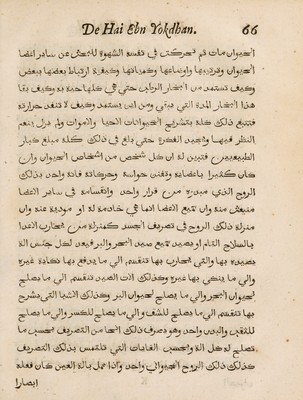 De Hai Ebn Yokdhan. 66
الحيوان مات ثم تحركت في نفسه الشهوة للبحث عن ساير اعضا
الحيوان وترتيبها واوضاعها وكمياتها وكيفية ارتباط بعضها ببعض
وكيف تستمد من البخار الحار حتي تستمر لها الحياة به وكيف بقا
هذا البخار المدة التي تبقي ومن اين يستمد وكيف لا تنفد حرارته
فتتبع ذلك كله بتشريح الحيوانات الاحيا والاموات ولم يزل ينعم
النظر فيها ويجيد الفكرة حتي بلغ في ذلك كله مبلغ كبار
الطبيعيين فتبين له ان كل شخص من اشخاص الحيوان وان
كان كثيرا باعضايه وتفنن حواسه وحركاته فانه واحد بذلك
الروح الذي مبدوه من قرار واحد وانقسامه في ساير الاعضا
منبعث منه وان جميع الاعضا انما هي خادمة له او مودية عنه وان
منزلة ذلك الروح في تصريف الجسد كمنزلة من يحارب الاعدا
بالسلاح التام او يصيد جميع صيد البحر والبر فيعد لكل جنس الة
يصيده بها والتي يحارب بها تنقسم الي ما يدفع بها نكاية غيره
والي ما ينكي بها غيره وكذلك الات الصيد تنقسم الي ما يصلح
لحيوان البحر والي ما يصلح لحيوان البر وكذلك الاشيا التي يشرح
بها تنقسم الي ما يصلح للشق والي ما يصلح للكسر والي ما يصلح
للثقب والبدن واحد وهو يصرف ذلك انحا من التصريف بحسب ما
تصلح له كل الة وبحسب الغايات التي تلتمس بذلك التصريف
كذلك ذلك الروح الحيواني واحد واذا عمل بالة العين كان فعله
ابصارا